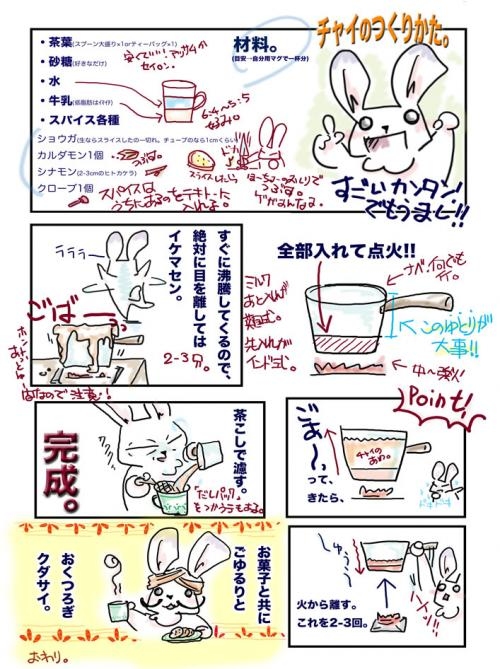 チャイのつくりかた。
材料。
(目安…自分用マグで一杯分)
・茶葉(スプーン大盛り×1orティーバッグ×1)
安くていい!アッサムか
セイロン。
・砂糖(好きなだけ)
・水
・牛乳(低脂肪はイヤイヤ)
6:4〜5:5
お好み。
・スパイス各種
ショウガ(生ならスライスしたの一切れ。チューブのなら1cmくらい)
カルダモン1個
つぶす。
シナモン(2-3cmのヒトカケラ)
クローブ1個
スライスしたら
ほーちょーの
つぶす。
スパイスは
うちにあるのをテキトーに
入れよ。
すごいカンタン
でもうまし!!
全部入れて点火!!
ナベ。何でも
可。
ミルク
あと入れが
麺式。
先入れが
インド式。
このゆとりが
大事!!
中〜強火!
すぐに沸騰してくるので、
絶対に目を離しては
イケマセン。
2-3分。
ラララー
ごばー
ホントあっという
まなので注意!
Point!
ごぁ〜〜っ
って、
きたら、
チャイの
あわ。
ドキドキ
しゅぅぅ
火から離す。
これを2-3回。
茶こしで濾す。
「だしパック」
をつかうテもある。
完成。
お菓子と共に
ごゆるりと
おくつろぎ
クダサイ。
おわり。